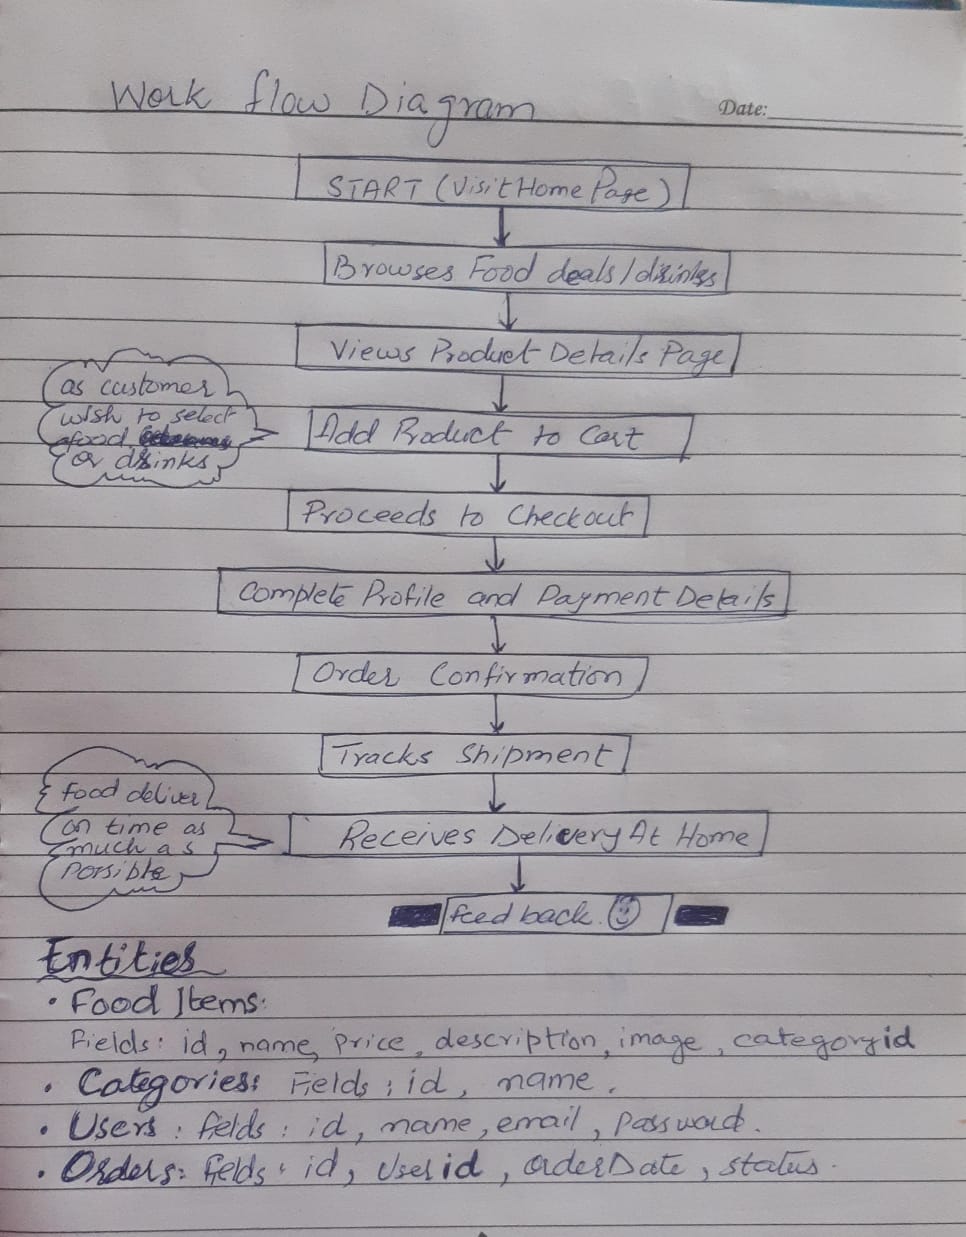 Work flow Diagram
Date:
START (Visit Home Page)
Browses Food deals/drinks
Views Product Details Page
as customer
wish to select
food
or drinks
Add Product to Cart
Proceeds to Checkout
Complete Profile and Payment Details
Order Confirmation
Tracks Shipment
food deliver
on time as
much as
possible
Receives Delivery At Home
feed back.
Entities
• Food Items:
Fields: id, name, price, description, image, categoryid
• Categories: Fields: id, name.
• Users: fields: id, name, email, password.
• Orders: fields: id, userid, orderDate, status.